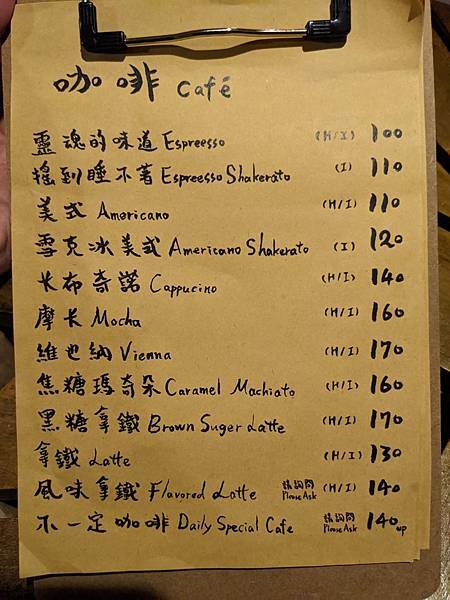 咖啡 Café
靈魂的味道 Espreesso (H/I) 100
搖到睡不著 Espreesso Shakerato (I) 110
美式 Americano (H/I) 110
雪克冰美式 Americano Shakerato (I) 120
卡布奇諾 Cappucino (H/I) 140
摩卡 Mocha (H/I) 160
維也納 Vienna (H/I) 170
焦糖瑪奇朵 Caramel Machiato (H/I) 160
黑糖拿鐵 Brown Suger Latte (H/I) 170
拿鐵 Latte (H/I) 130
風味拿鐵 Flavored Latte 請詢問 Please Ask (H/I) 140
不一定咖啡 Daily Special Cafe 請詢問 Please Ask 140 up